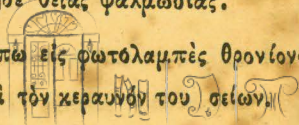 θείας ψαλμῳδίας.
εἰς φωτολαμπὲς θρονίον
τὸν κεραυνόν του σείων,